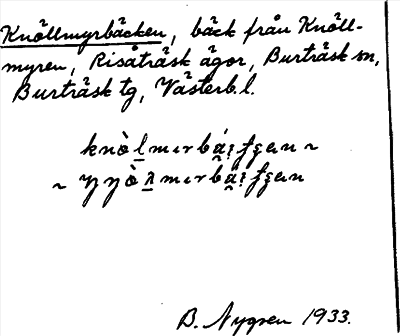 Knöllmyrbäcken, bäck från Knöll-
myren, Risåträsk ägor, Burträsk sn,
Burträsk tg, Västerb. l.
B. Nygren 1933.